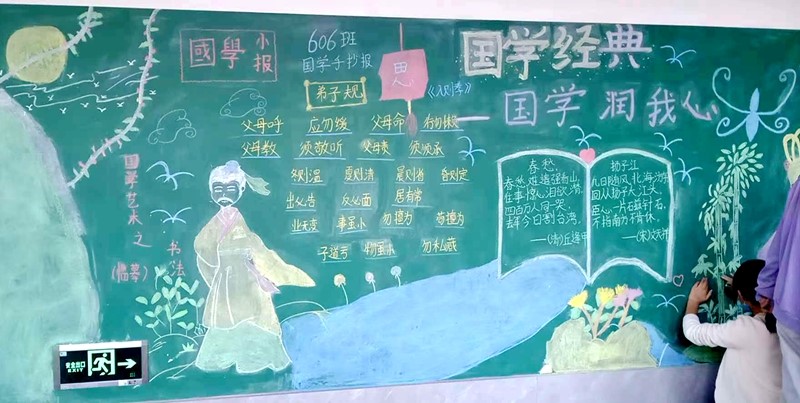 國學 小报
606班
国学手抄报
思
国学经典
国学润我心
弟子规
《入则孝》
父母呼 应勿缓 父母命
父母教 须敬听 父母责 须顺承
冬则温 夏则清 晨则省 昏则定
出必告 反必面 居有常
业无变 事虽小 勿擅为 苟擅为
子道亏 物虽小 勿私藏
国学艺术之
书法
春愁
春愁难遣强看山,
往事惊心泪欲潸.
四百万人同一哭,
去年今日割台湾.
——(清)丘逢甲
扬子江
几日随风北海游,
回从扬子大江头.
臣心一片磁针石,
不指南方不肯休.
——(宋)文天祥
安全出口
EXIT